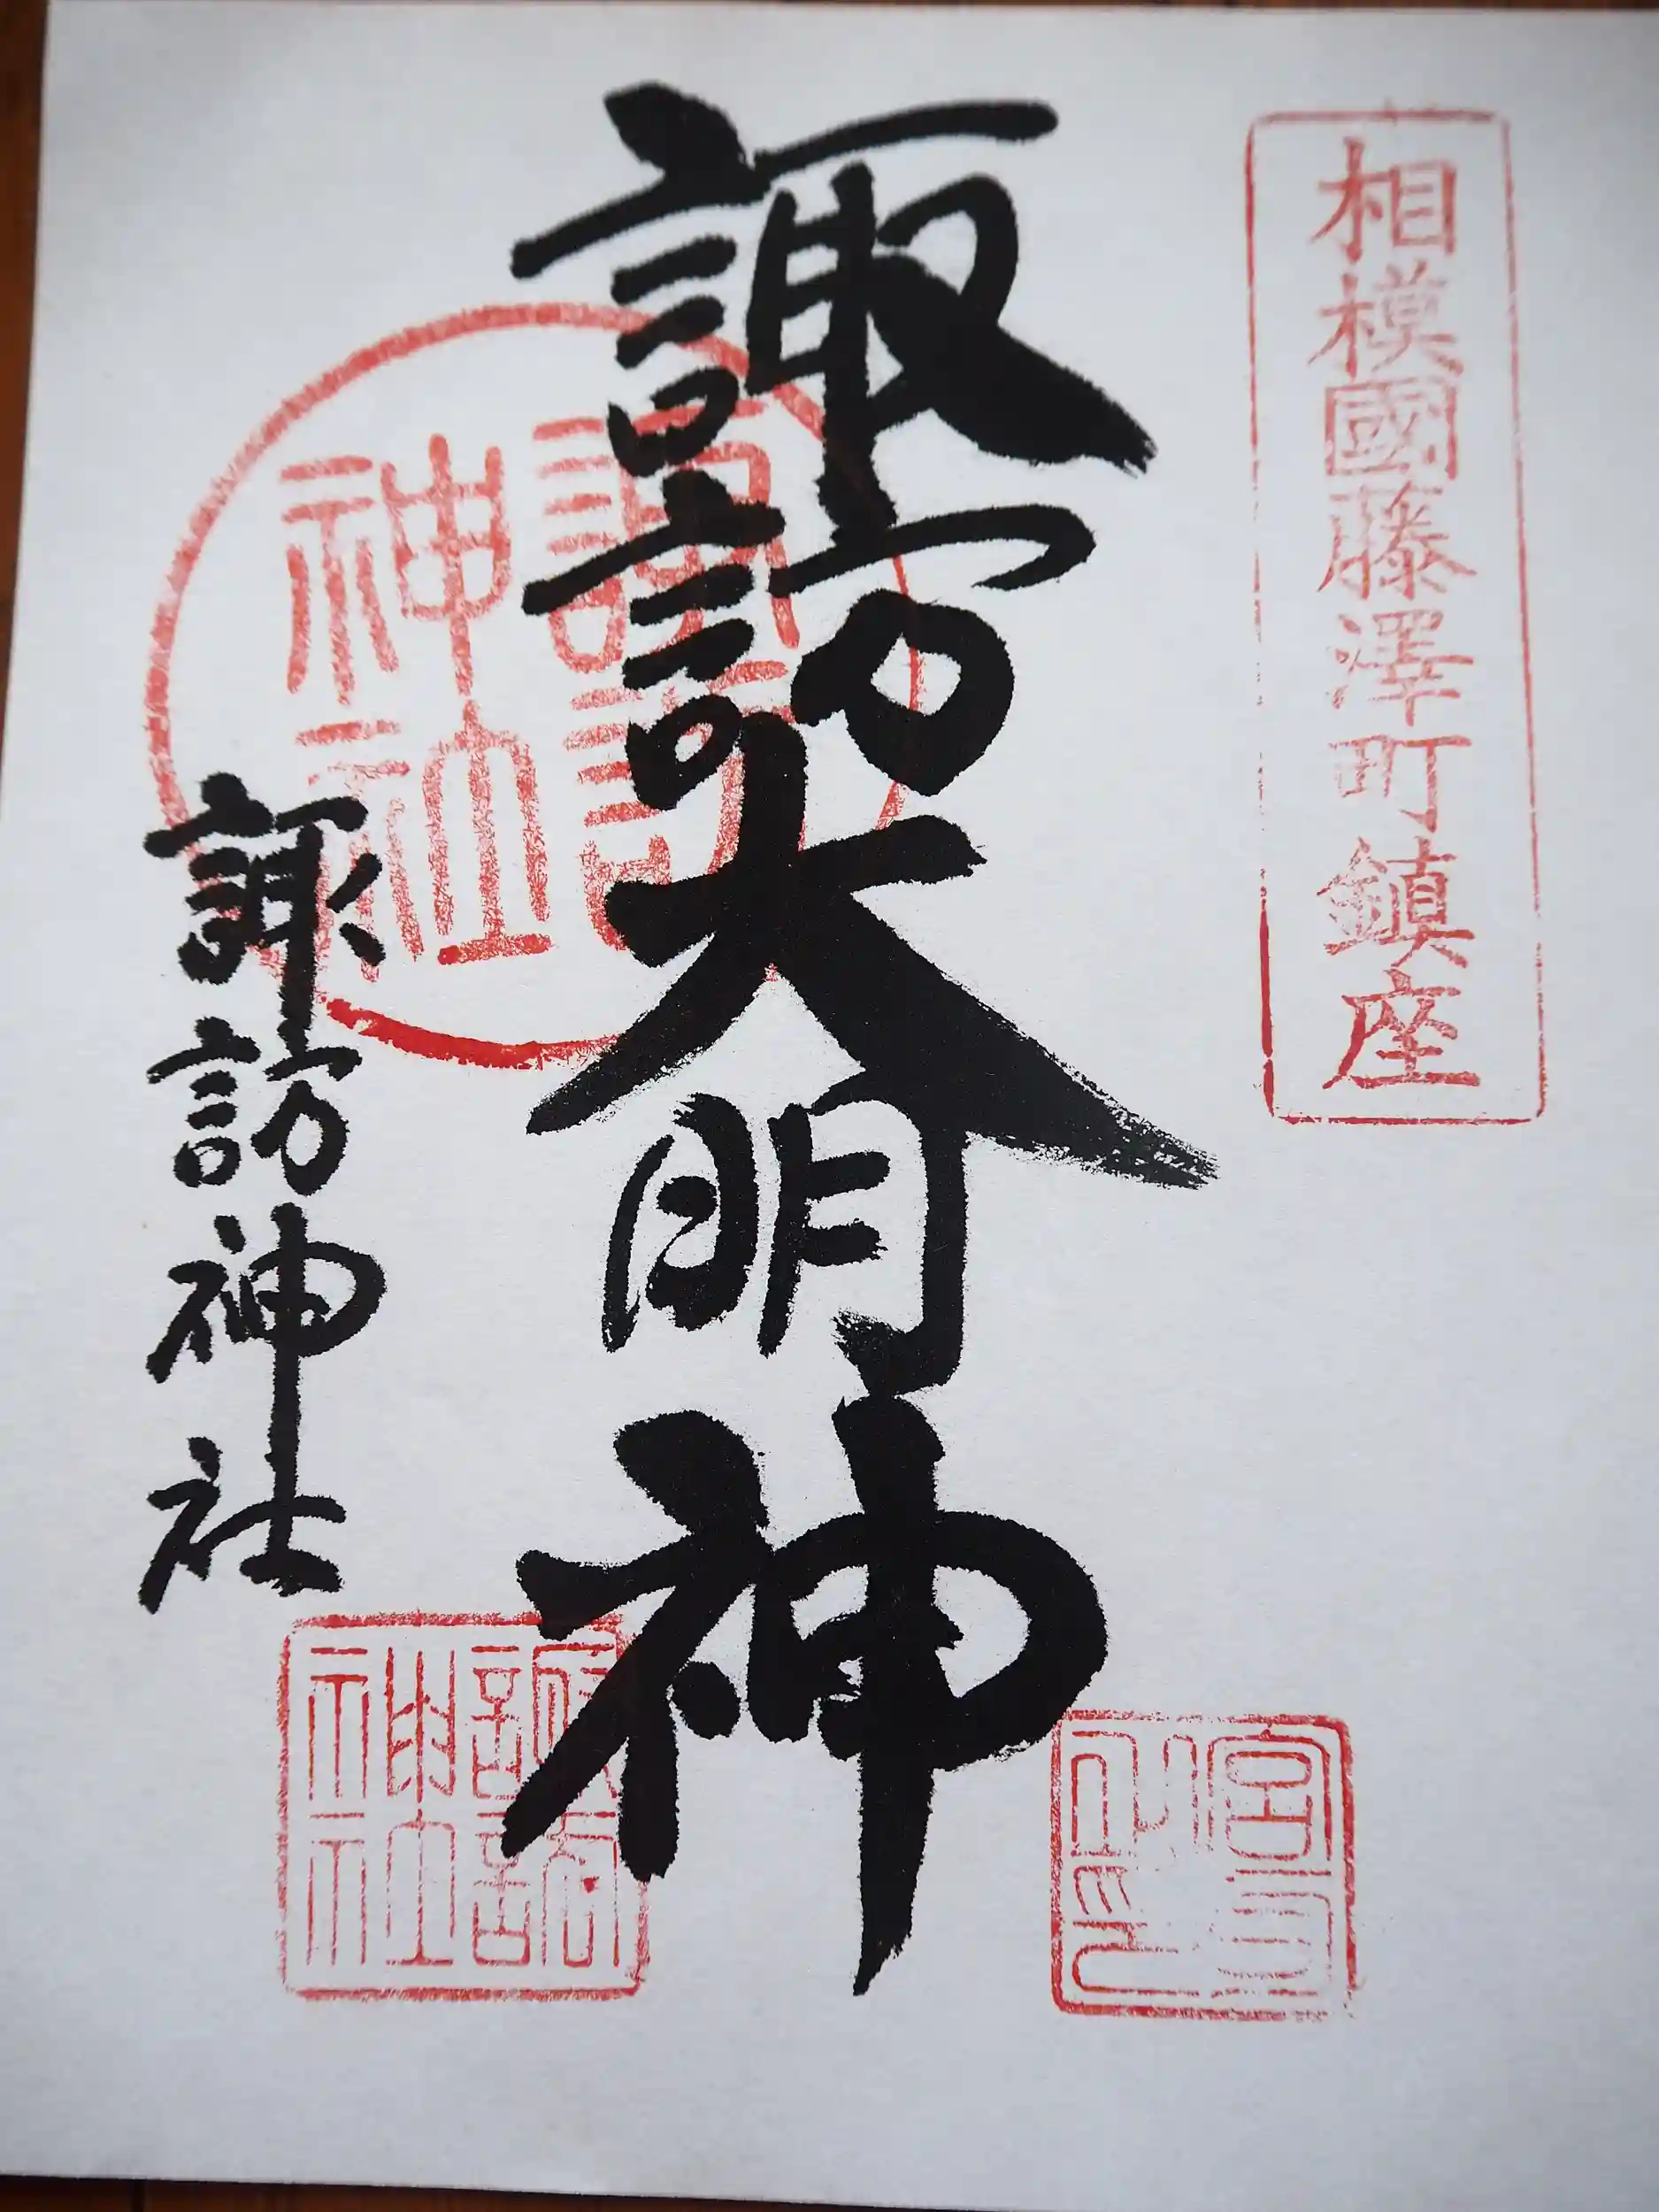 相模國藤澤町鎮座
諏訪大明神
諏訪神社
諏訪
神社
宮司
之印
諏訪
神社